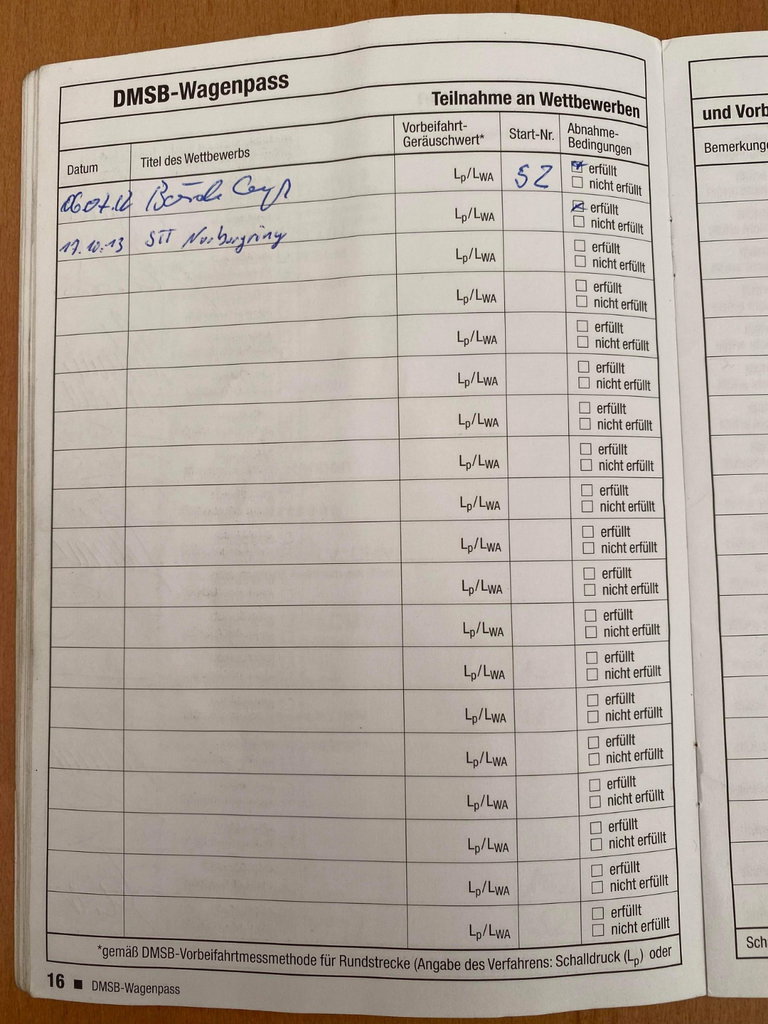 DMSB-Wagenpass
Teilnahme an Wettbewerben
Datum Titel des Wettbewerbs Vorbeifahrt-Geräuschwert* Start-Nr. Abnahme-Bedingungen
06.07.12 Lp/LWA 52 erfüllt
nicht erfüllt
17.10.13 STT Nürburgring Lp/LWA erfüllt
nicht erfüllt
Lp/LWA erfüllt
nicht erfüllt
Lp/LWA erfüllt
nicht erfüllt
Lp/LWA erfüllt
nicht erfüllt
Lp/LWA erfüllt
nicht erfüllt
Lp/LWA erfüllt
nicht erfüllt
Lp/LWA erfüllt
nicht erfüllt
Lp/LWA erfüllt
nicht erfüllt
Lp/LWA erfüllt
nicht erfüllt
Lp/LWA erfüllt
nicht erfüllt
Lp/LWA erfüllt
nicht erfüllt
Lp/LWA erfüllt
nicht erfüllt
Lp/LWA erfüllt
nicht erfüllt
Lp/LWA erfüllt
nicht erfüllt
Lp/LWA erfüllt
nicht erfüllt
Lp/LWA erfüllt
nicht erfüllt
Lp/LWA erfüllt
nicht erfüllt
Lp/LWA erfüllt
nicht erfüllt
*gemäß DMSB-Vorbeifahrtmessmethode für Rundstrecke (Angabe des Verfahrens: Schalldruck (Lp) oder
16 ■ DMSB-Wagenpass
und Vorb
Bemerkunge
Sch